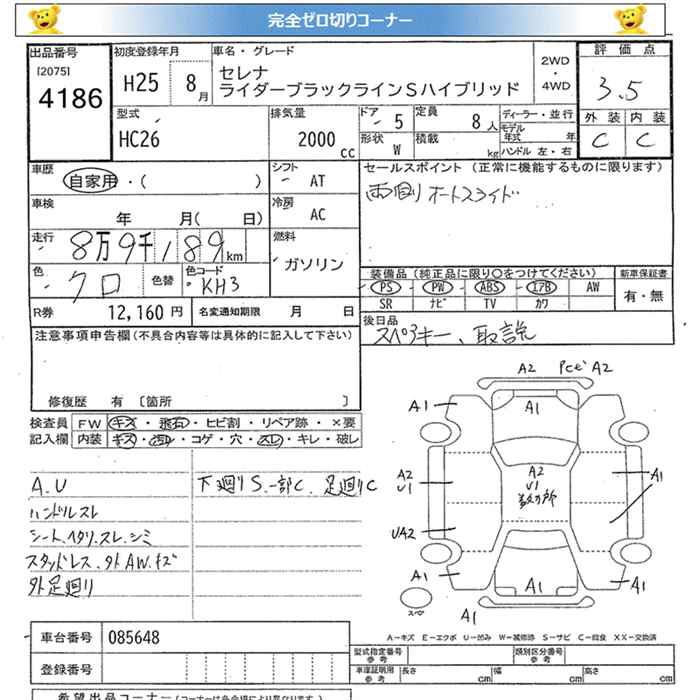 完全ゼロ切りコーナー
出品番号
[2075]
4186
初度登録年月
H25 8月
車名・グレード
セレナ
ライダーブラックラインSハイブリッド
2WD
・
4WD
評価点
3.5
外装 内装
C C
型式
HC26
排気量
2000 cc
ドア 5
定員 8人
形状 W
積載 kg
ディーラー・並行
モデル年式 年
ハンドル 左・右
車歴
自家用・( )
シフト
AT
セールスポイント (正常に機能するものに限ります)
両側オートスライド
車検
年 月( 日)
冷房
AC
走行
8万9千189km
燃料
ガソリン
色
クロ
色替
色コード
KH3
装備品 (純正品に限り○をつけてください)
PS PW ABS エアB AW
SR ナビ TV カワ
新車保証書
有・無
R券 12,160円
名変通知期限 月 日
後日品
スペアキー、取説
注意事項申告欄 (不具合内容等は具体的に記入して下さい)
修復歴 有 〔箇所 〕
検査員
記入欄
FW キズ・飛石・ヒビ割・リペア跡・×要
内装 キズ・汚れ・コゲ・穴・スレ・キレ・破レ
A.U
ハンドルスレ
シート、ヘタリ、スレ、シミ
スタッドレス、外AW、キズ
外足廻り
下廻りS、一部C、足廻りC
A2 A2
A1 A1
A2
U1
A2
U1
A1
UA2
A1 A1 A1
A1
スペア
A−キズ E−エクボ U−凹み W−補修跡 S−サビ C−腐食 XX−交換済
車台番号 085648
登録番号
型式指定番号
参考
類別区分番号
参考
車庫証明用
参考
長さ cm
幅 cm
高さ cm
希望出品コーナー